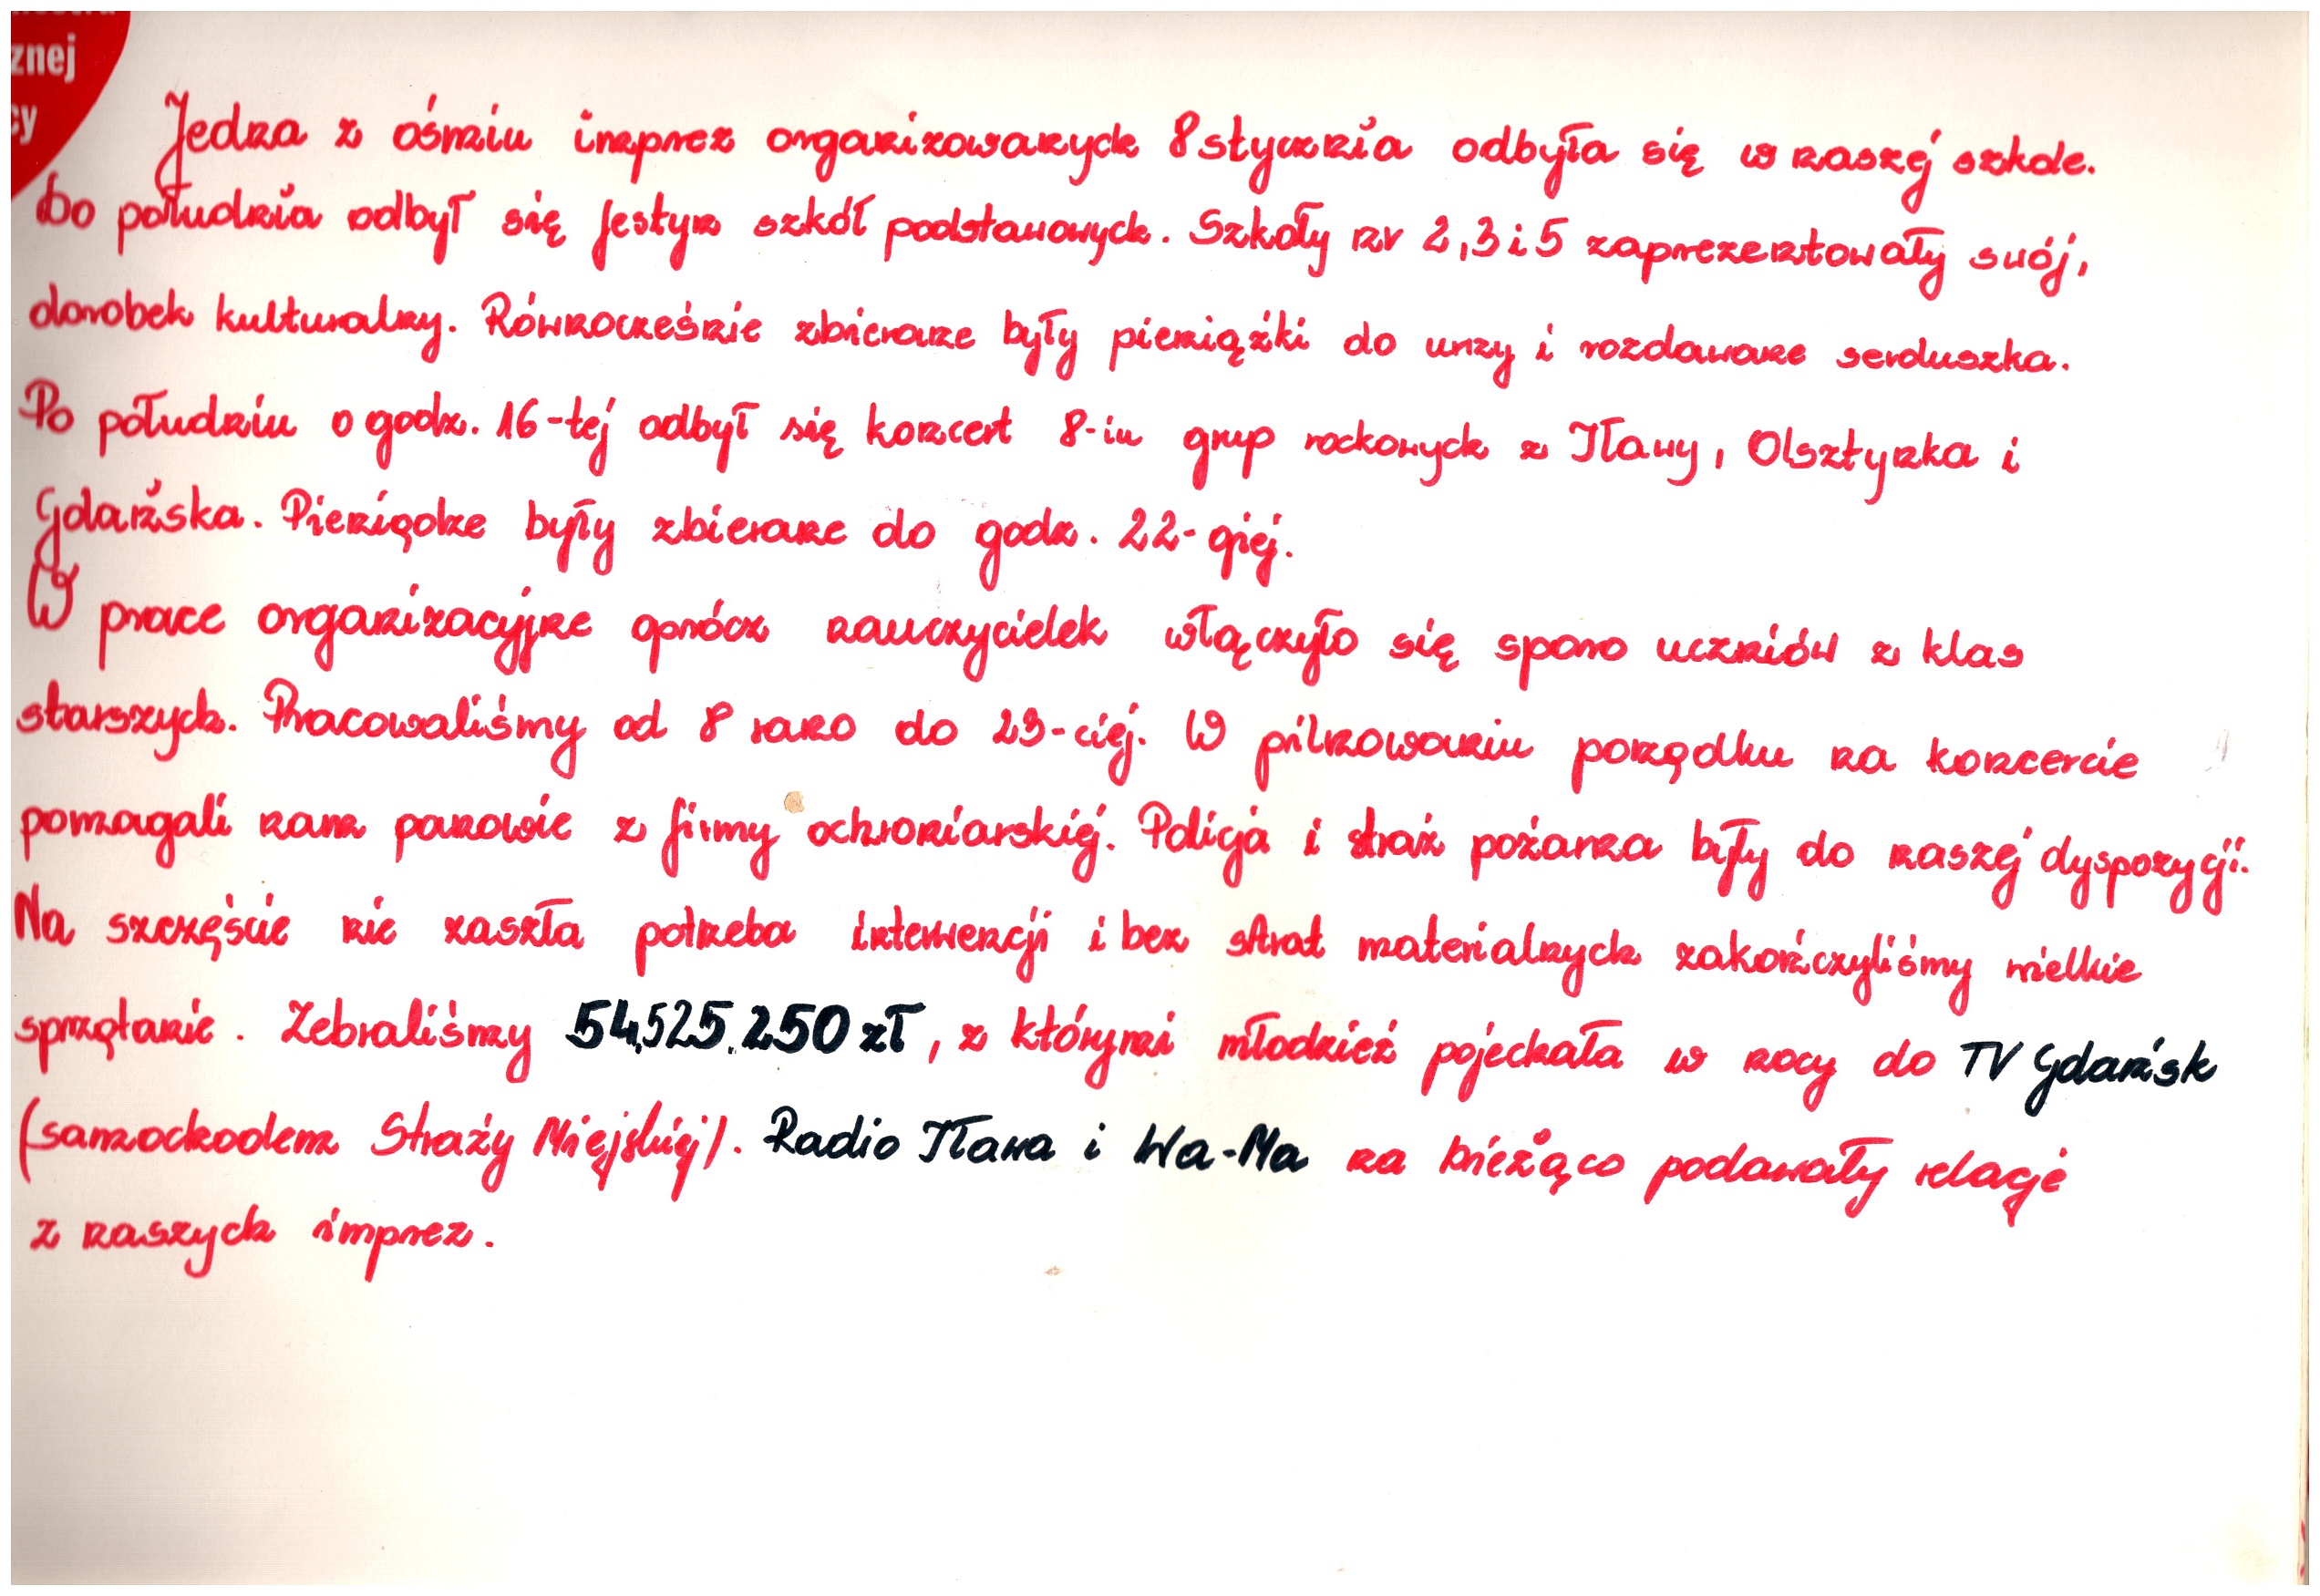 znej
cy
Jedna z ośmiu imprez organizowanych 8 stycznia odbyła się w naszej szkole.
Do południa odbył się festyn szkół podstawowych. Szkoły nr 2, 3 i 5 zaprezentowały swój,
dorobek kulturalny. Równocześnie zbierane były pieniążki do urzy i rozdawane serduszka.
Po południu o godz. 16-tej odbył się koncert 8-iu grup rockowych z Iławy, Olsztynka i
Gdańska. Pieniądze były zbierane do godz. 22-giej.
W prace organizacyjne oprócz nauczycielek włączyło się sporo uczniów z klas
starszych. Pracowaliśmy od 8 rano do 23-ciej. W pilnowaniu porządku na koncercie
pomagali nam panowie z firmy ochroniarskiej. Policja i straż pożarna były do naszej dyspozycji.
Na szczęście nie zaszła potrzeba interwencji i bez strat materialnych zakończyliśmy wielkie
sprzątanie. Zebraliśmy 54.525.250 zł, z którymi młodzież pojechała w nocy do TV Gdańsk
(samochodem Straży Miejskiej). Radio Iława i Wa-Ma na bieżąco podawały relacje
z naszych imprez.